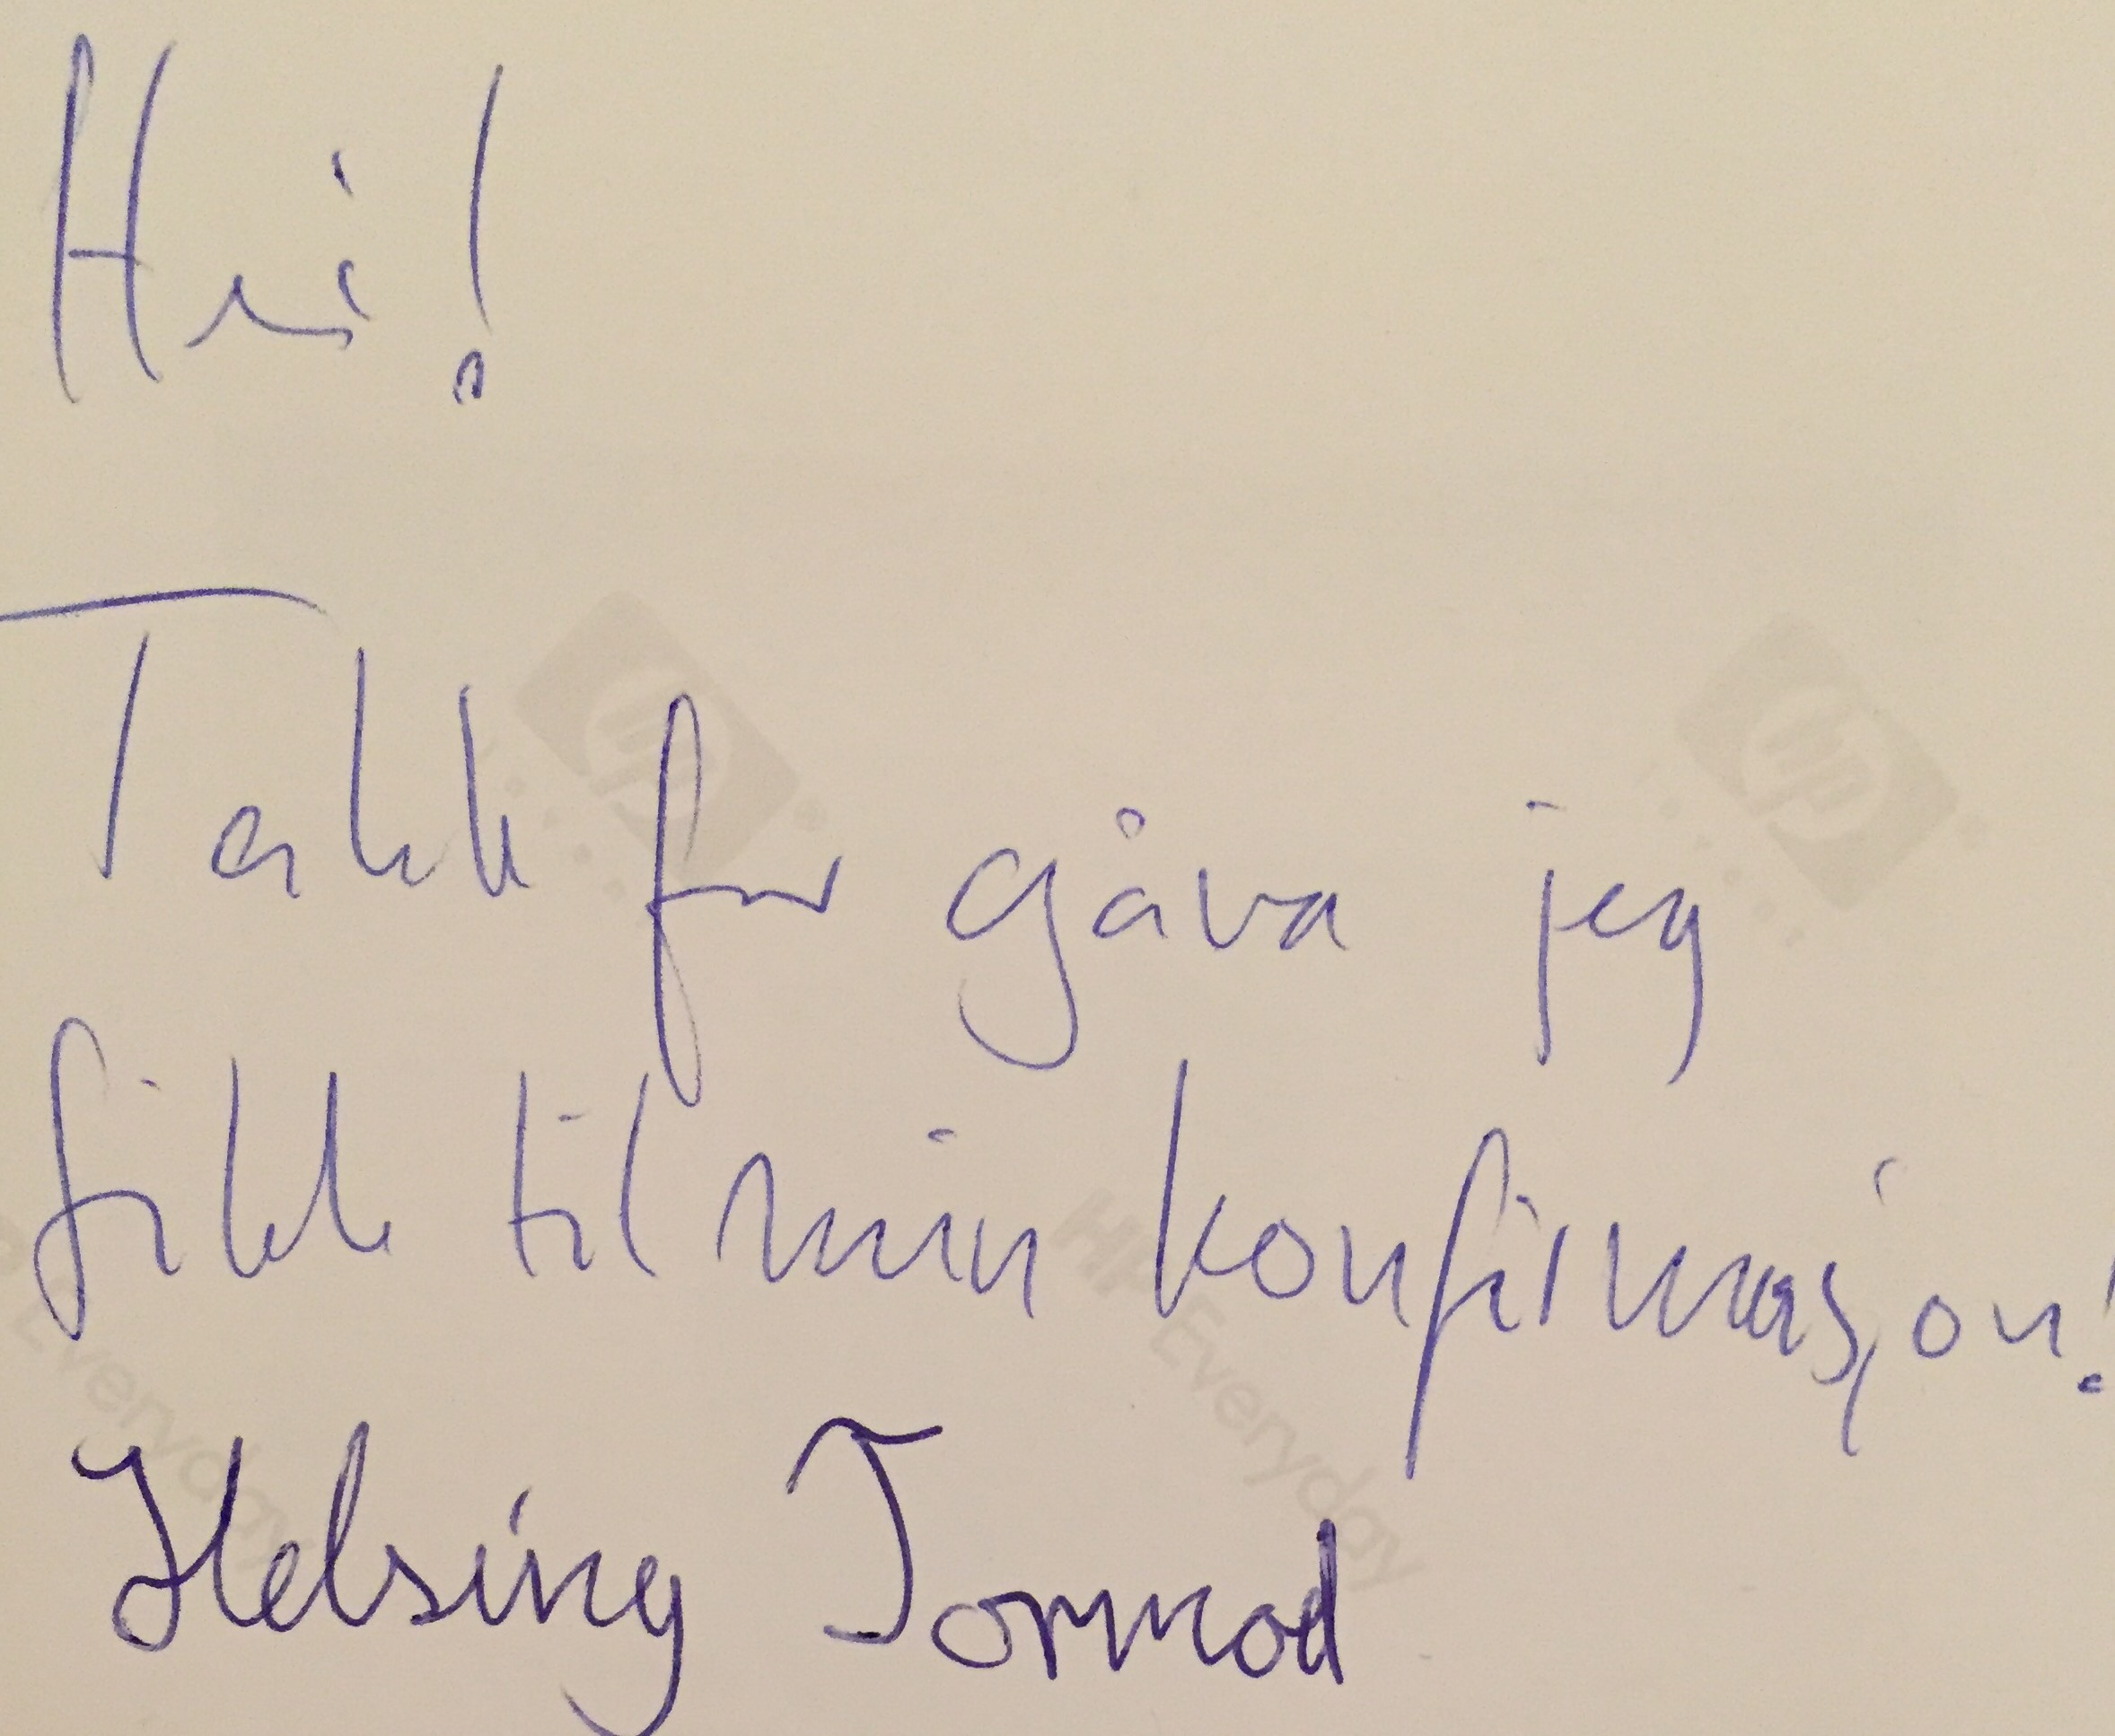 Hei!
Takk for gåva jeg
fikk til min konfirmasjon!
Helsing Tormod
hp
hp
HP Everyday
HP Everyday